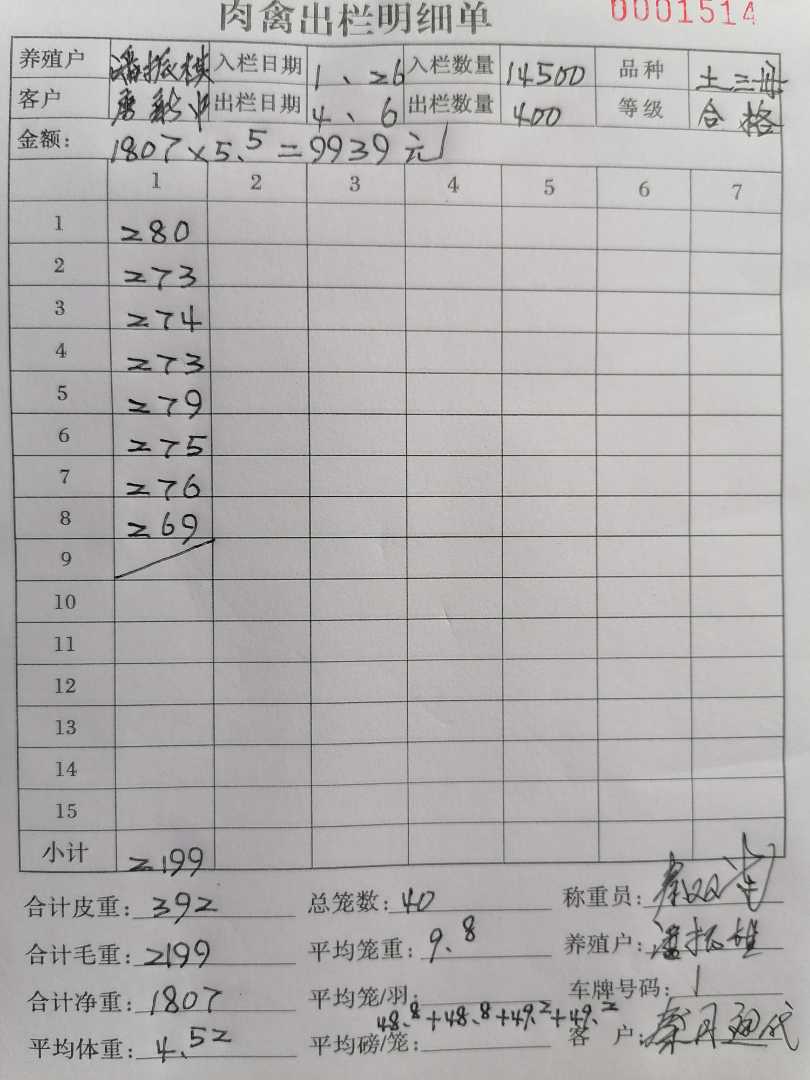 肉禽出栏明细单 0001514
养殖户 潘振棋 入栏日期 1、26 入栏数量 14500 品种 土二
客户 出栏日期 4、6 出栏数量 400 等级 合格
金额: 1807×5.5=9939元
1 2 3 4 5 6 7
1 280
2 273
3 274
4 273
5 279
6 275
7 276
8 269
9
10
11
12
13
14
15
小计 2199
合计皮重: 392 总笼数: 40 称重员:
合计毛重: 2199 平均笼重: 9.8 养殖户: 潘振雄
合计净重: 1807 平均笼/羽: 车牌号码:
48.8+48.8+49.2+49.2
平均体重: 4.52 平均磅/笼: 客户: